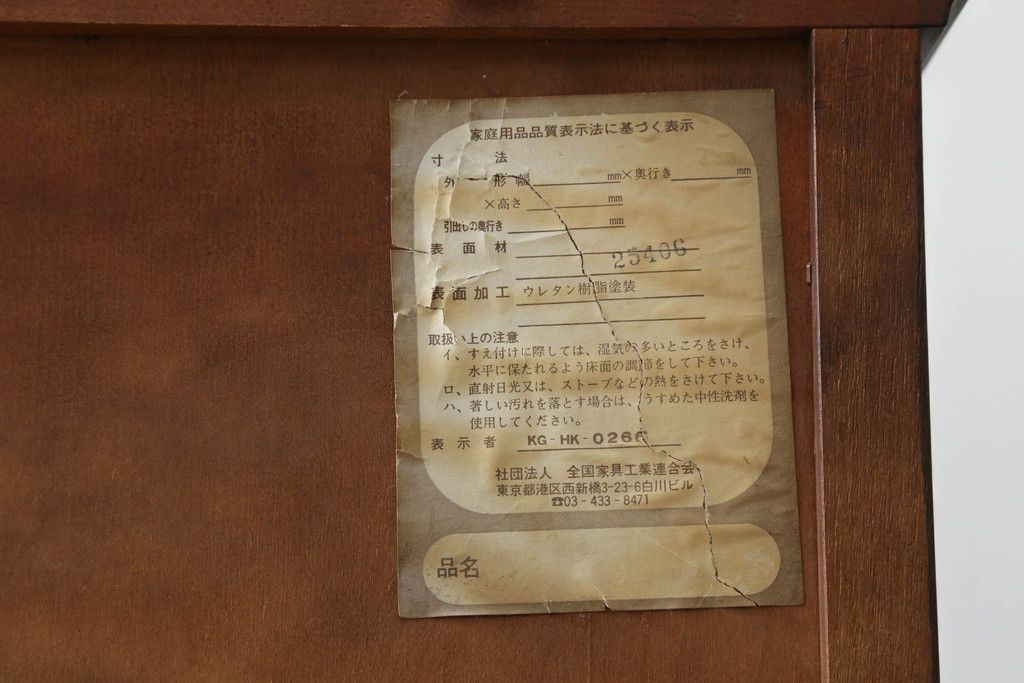 家庭用品品質表示法に基づく表示
寸法
外形 幅 mm×奥行き mm
×高さ mm
引出しの奥行き mm
表面材 25406
表面加工 ウレタン樹脂塗装
取扱い上の注意
イ、すえ付けに際しては、湿気の多いところをさけ、
水平に保たれるよう床面の調節をして下さい。
ロ、直射日光又は、ストーブなどの熱をさけて下さい。
ハ、著しい汚れを落とす場合は、うすめた中性洗剤を
使用してください。
表示者 KG-HK-0266
社団法人 全国家具工業連合会
東京都港区西新橋3-23-6白川ビル
☎03-433-8471
品名